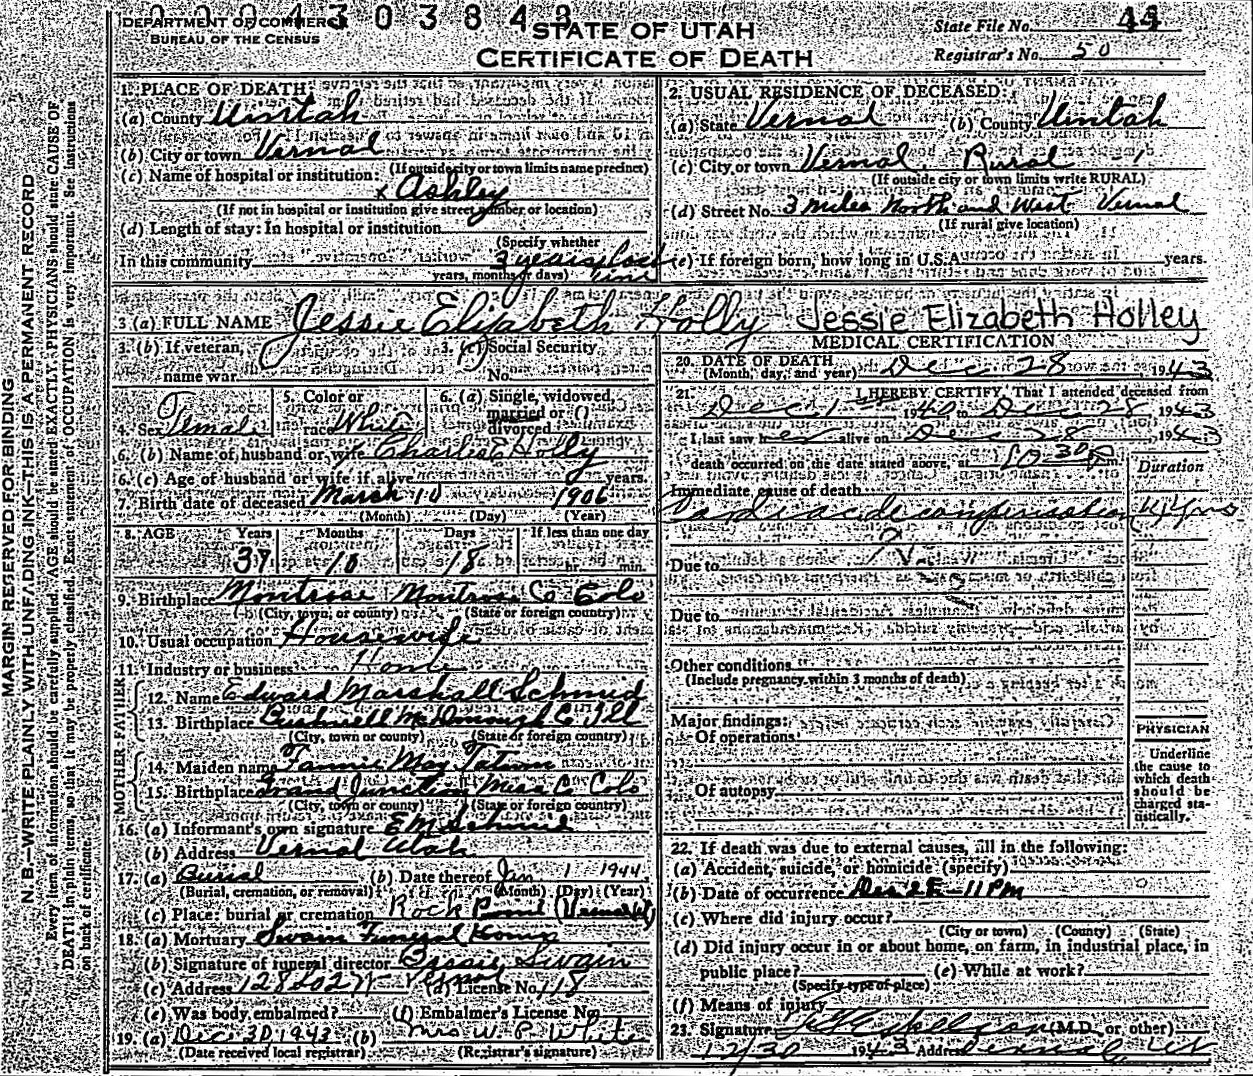 DEPARTMENT OF COMMERCE
BUREAU OF THE CENSUS
STATE OF UTAH
CERTIFICATE OF DEATH
State File No.
Registrar's No. 50
MARGIN RESERVED FOR BINDING
N. B.—WRITE PLAINLY WITH UNFADING INK—THIS IS A PERMANENT RECORD
Every item of information should be carefully supplied. AGE should be stated EXACTLY. PHYSICIANS should state CAUSE OF
DEATH in plain terms, so that it may be properly classified. Exact statement of OCCUPATION is very important. See instructions
on back of certificate.
1. PLACE OF DEATH:
(a) County Uintah
(b) City or town Vernal
(If outside city or town limits name precinct)
(c) Name of hospital or institution:
x Ashley
(If not in hospital or institution give street number or location)
(d) Length of stay: In hospital or institution
(Specify whether
In this community 3 years last time
years, months or days)
2. USUAL RESIDENCE OF DECEASED:
(a) State Vernal (b) County Uintah
(c) City or town Vernal Rural
(If outside city or town limits write RURAL)
(d) Street No. 3 miles North and West Vernal
(If rural give location)
(e) If foreign born, how long in U.S.A. years.
3 (a) FULL NAME Jessie Elizabeth Holly Jessie Elizabeth Holley
3. (b) If veteran, 3. (c) Social Security
name war No.
4. Sex Female 5. Color or race White 6. (a) Single, widowed, married or divorced
6. (b) Name of husband or wife Charles E Holly
6. (c) Age of husband or wife if alive years.
7. Birth date of deceased March 10 1906
(Month) (Day) (Year)
8. AGE Years Months Days If less than one day
37 10 18 hr. min.
9. Birthplace Montrose Montrose Co Colo
(City, town, or county) (State or foreign country)
10. Usual occupation Housewife
11. Industry or business Home
FATHER
12. Name Edward Marshall Schmid
13. Birthplace Bushnell McDonough Co Ill
(City, town or county) (State or foreign country)
MOTHER
14. Maiden name Fannie May Tatum
15. Birthplace Grand Junction Mesa Co Colo
(City, town or county) (State or foreign country)
16. (a) Informant's own signature E M Schmid
(b) Address Vernal Utah
17. (a) Burial (b) Date thereof Jan 1 1944
(Burial, cremation, or removal) (Month) (Day) (Year)
(c) Place: burial or cremation Rock Point (Vernal)
18. (a) Mortuary Swain Funeral Home
(b) Signature of funeral director Swain
(c) Address Vernal (d) License No. 118
(e) Was body embalmed? (f) Embalmer's License No.
19. (a) Dec 30 1943 (b) Mrs W. P. White
(Date received local registrar) (Registrar's signature)
MEDICAL CERTIFICATION
20. DATE OF DEATH
(Month, day, and year) Dec 28 1943
21. I HEREBY CERTIFY, That I attended deceased from
Dec 1 1940 to Dec 28 1943
I last saw her alive on Dec 28, 1943
death occurred on the date stated above, at
Duration
Immediate cause of death
Cardiac decompensation
Due to
Due to
Other conditions
(Include pregnancy within 3 months of death)
Major findings:
Of operations
Of autopsy
PHYSICIAN
Underline
the cause to
which death
should be
charged sta-
tistically.
22. If death was due to external causes, fill in the following:
(a) Accident, suicide, or homicide (specify)
(b) Date of occurrence Dec 28 - 11 PM
(c) Where did injury occur?
(City or town) (County) (State)
(d) Did injury occur in or about home, on farm, in industrial place, in
public place? (e) While at work?
(Specify type of place)
(f) Means of injury
23. Signature (M.D. or other)
12/30 1943 Address Vernal, Ut